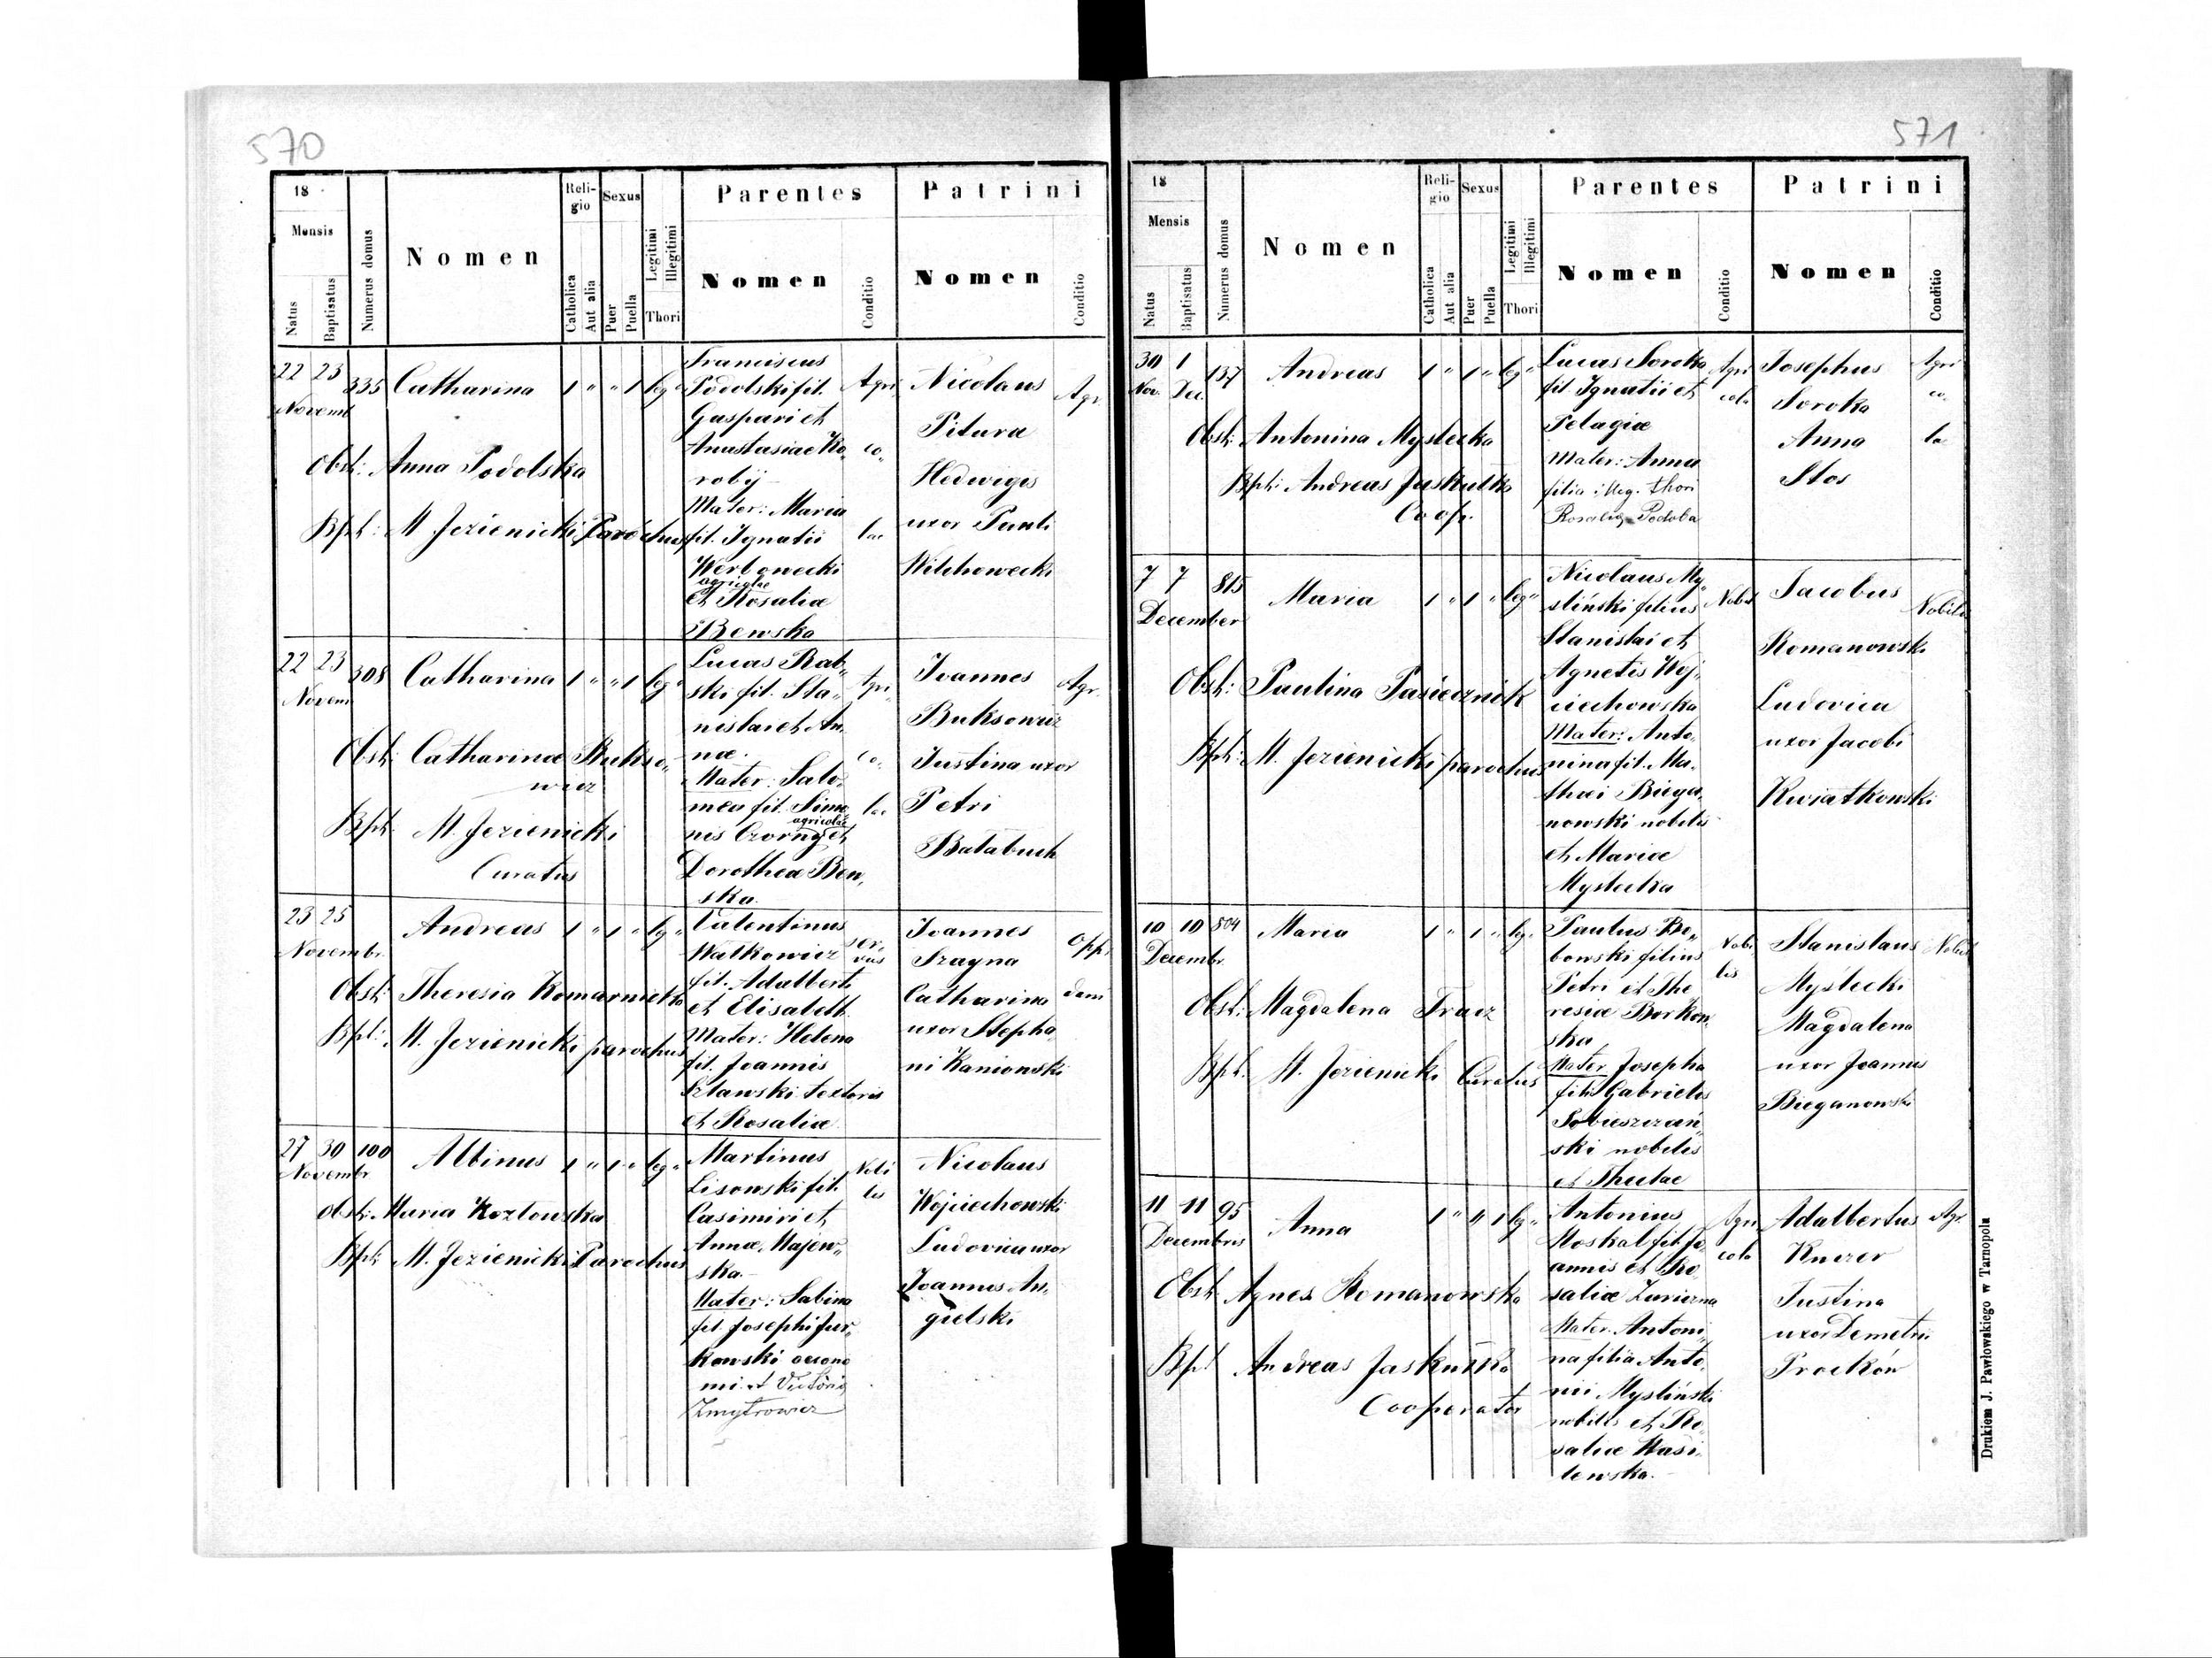 570
18
Mensis
Natus
Baptisatus
Numerus domus
Nomen
Religio
Catholica
Aut alia
Sexus
Puer
Puella
Legitimi
Illegitimi
Thori
Parentes
Nomen
Conditio
Patrini
Nomen
Conditio
22 23 335 Catharina 1 " " 1 leg "
Novemb
Obst: Anna Podolska
Bpt: M Jezienicki Parochus
Franciscus
Podolski fil.
Gaspari et
Anastasiae Ko„
robij
Mater: Maria
fil. Ignatii
Werbonecki
agricolae
et Rosaliae
Bewska
Agri„
co„
lae
Nicolaus
Pitura
Hedwigis
uxor Pauli
Witchowecki
Agr.
22 23 308 Catharina 1 " " 1 leg "
Novem
Obst: Catharinae Bukso„
wicz
Bpt. M. Jezienicki
Curatus
Lucas Rab„
ski fil. Sta„
nislai et An„
nae.
Mater: Salo„
mea fil. Simo
agricolae
nis Czorny et
Dorothea Bew„
ska.
Agri„
co„
lae
Joannes
Buksowicz
Justina uxor
Petri
Batabuch
Agr.
23 25 Andreas 1 " 1 " leg "
Novembr.
Obst: Theresia Komarnicka
Bpt: M. Jezienicki parochus
Valentinus
Watkowicz
fil. Adalberti
et Elisabeth
Mater: Helena
fil. Joannis
Sztawski textoris
et Rosaliae
ser„
vus
Joannes
Szayna
Catharina
uxor Stepha„
ni Kanionski
Oppi
dani
27 30 100 Albinus 1 " 1 " leg "
Novembr
Obst: Maria Koztowska
Bpt: M. Jezienicki Parochus
Martinus
Lisowski fil.
Casimiri et
Annae Majew„
ska
Mater: Sabina
fil. Josephi Jur„
kowski oecono
mi et Victoria
Zmytrowicz
Nobi
lis
Nicolaus
Wojciechowski
Ludovica uxor
Joannes An„
gielski
571
18
Mensis
Natus
Baptisatus
Numerus domus
Nomen
Religio
Catholica
Aut alia
Sexus
Puer
Puella
Legitimi
Illegitimi
Thori
Parentes
Nomen
Conditio
Patrini
Nomen
Conditio
30 1 137 Andreas 1 " 1 " leg "
Nov. Dec.
Obst: Antonina Mystecka
Bpt: Andreas Jaskulka
Coop.
Lucas Soroka
fil. Ignatii et
Pelagiae
Mater: Anna
filia illeg. thori
Rosaliae Podoba
Agri
cola
Josephus
Soroka
Anna
Stos
Agri
co„
la
7 7 815 Maria 1 " 1 " leg "
December
Obst: Paulina Pasiecznik
Bpt: M. Jezienicki parochus
Nicolaus My„
sliński filius
Stanislai et
Agnetis Woj„
ciechowska
Mater: Anto„
nina fil. Ma„
thaei Biega„
nowski nobilis
et Mariae
Mystecka
Nobil
Jacobus
Romanowski
Ludovica
uxor Jacobi
Kwiatkowski
Nobilis
10 10 804 Maria 1 " 1 " leg.
Decembr.
Obst: Magdalena Tracz
Bpt. M. Jezienicki Curatus
Paulus Bo„
bowski filius
Petri et The
resiae Borkow
ska
Mater Josepha
filia Gabrielis
Sobieszczań„
ski nobilis
et Theclae
Nobi
lis
Stanislaus
Myślecki
Magdalena
uxor Joannis
Bieganowski
Nobil
11 11 95 Anna 1 " " 1 leg "
Decembris
Obst. Agnes Romanowska
Bpt Andreas Jaskulka
Cooperator
Antonius
Moskal fil. Jo„
annis et Ro
saliae
Mater. Antoni„
na filia Anto„
nii Mysliński
nobilis et Ro„
saliae Wasi„
lewska.
Agri
cola
Adalbertus
Knezer
Justina
uxor Demetrii
Prockón
Agr.
Drukiem J. Pawłowskiego w Tarnopolu